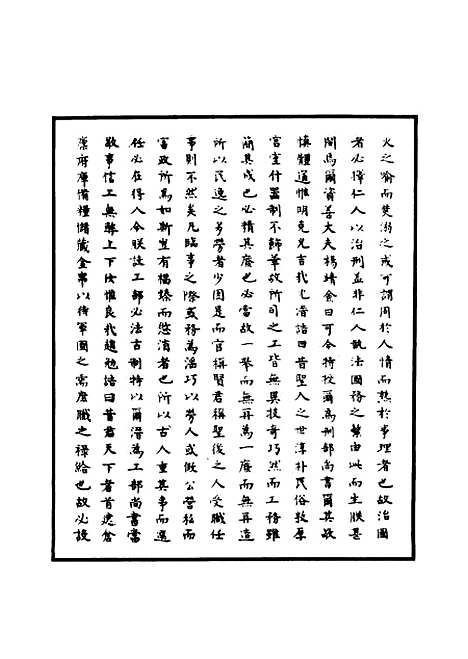 火之喻而焚溺之戒可謂周於人情而熟於事理者也故治國
者必擇仁人以治刑蓋非仁人執法國務之繁由此而生朕甚
閔焉爾資善大夫楊靖僉曰可令特授爾爲刑部尚書爾其敬
慎體道惟明克允吉哉 潛誥曰昔聖人之世淳朴民俗敦厚
宮室什器制不飾華故所司之工皆無異技奇巧然而工務雖
簡其成也必精其廢也必當故一舉而無再爲一廢而無再造
所以民逸之多勞者少因是而官稱賢君稱聖後之人受職任
事則不然矣凡臨事之際或務爲淫巧以勞人或倣公營私而
富政所爲如斯豈有福臻而愆消者也所以古人重其事而選
任必在得人今朕註工部必法古制特以爾潛爲工部尚書當
敬事信工無驊上下汝惟良哉趙勉誥曰昔君天下者首慮倉
廩府庫備糧儲藏金帛以待軍國之需庶職之祿給也故必設